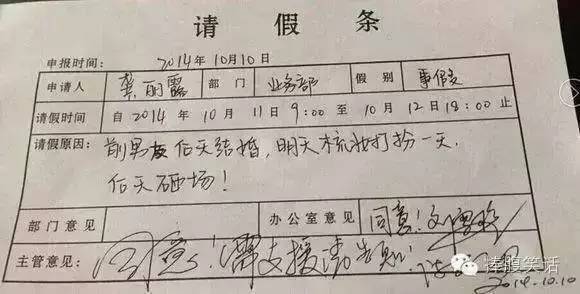 请假条
申报时间： 2014年10月10日
申请人 龚丽霞 部门 业务部 假别 事假
请假时间 自2014年10月11日9:00至10月12日18:00止
请假原因： 前男友后天结婚，明天梳妆打扮一天，
后天砸场！
部门意见 办公室意见 同意！
主管意见： 同意！需支援请告知！
2014.10.10
捧腹笑话